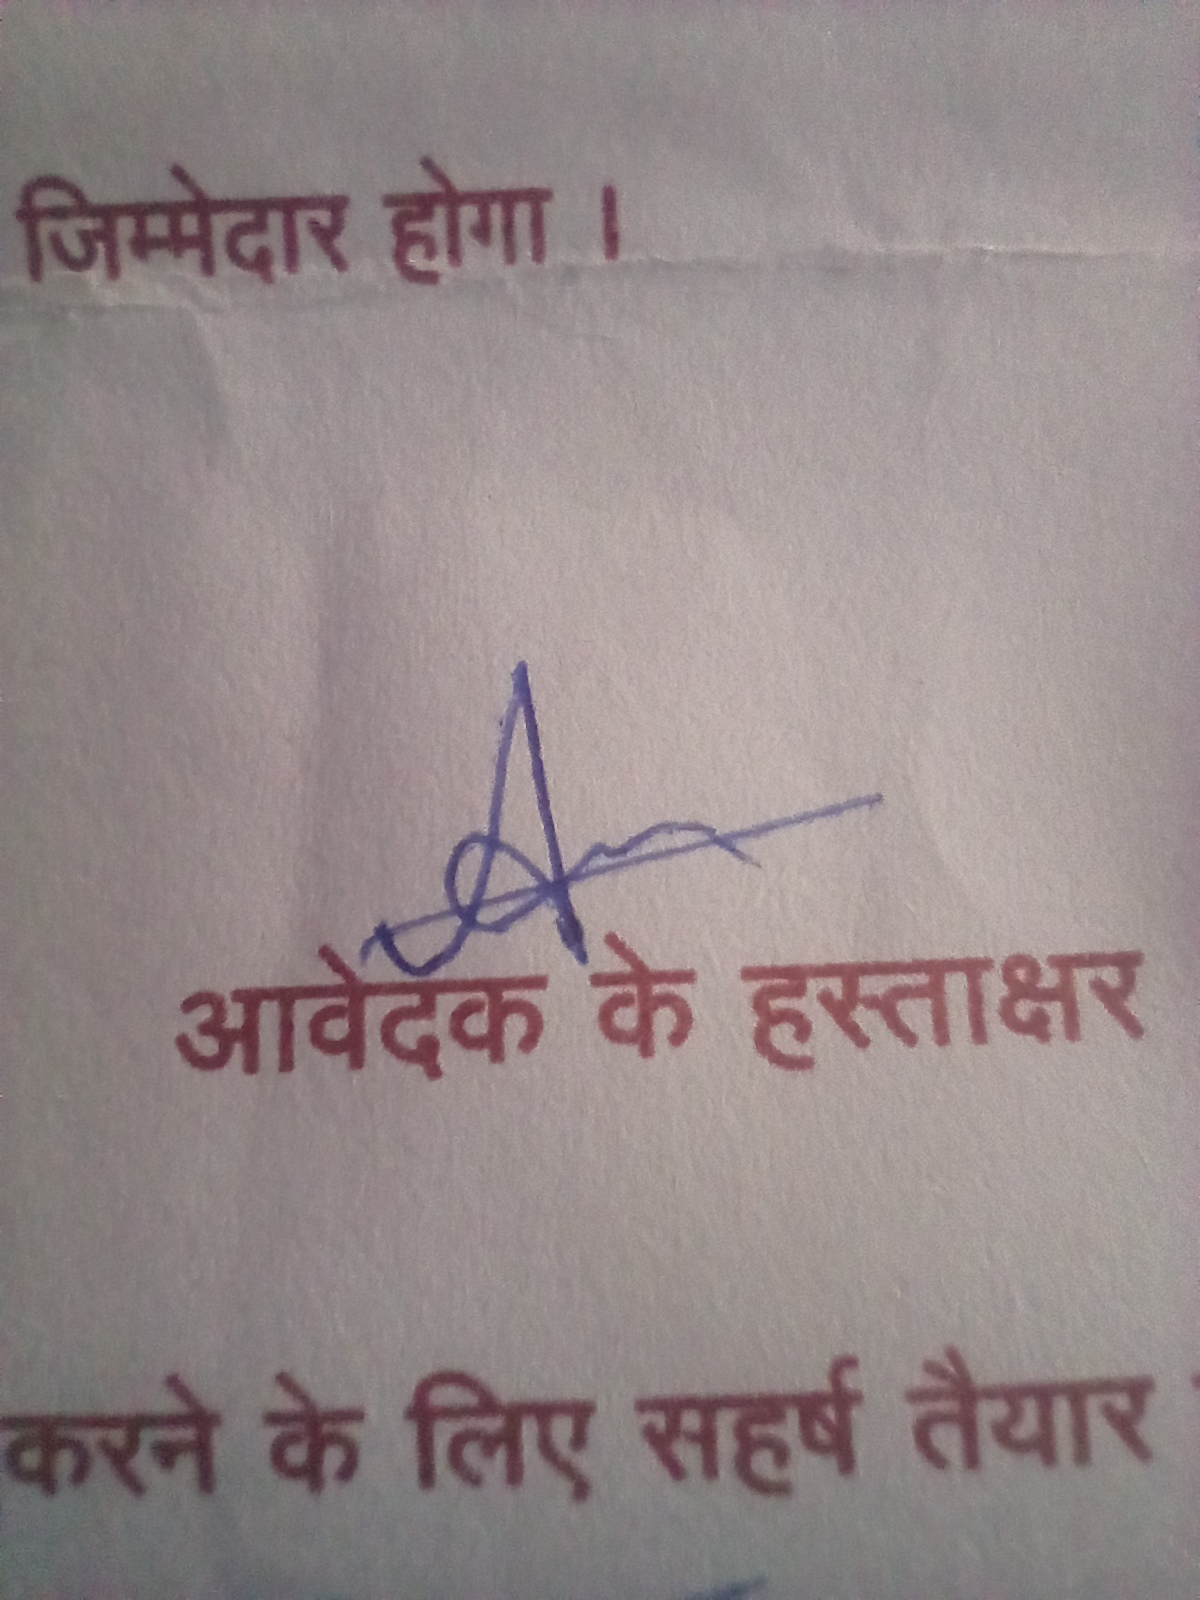 जिम्मेदार होगा ।
आवेदक के हस्ताक्षर
करने के लिए सहर्ष तैयार